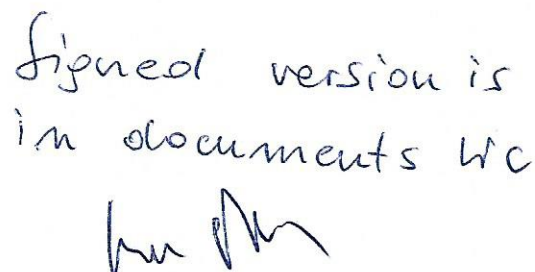 Signed version is
in documents